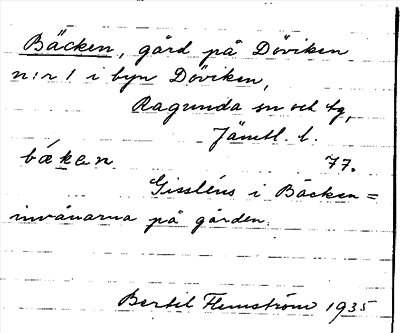 Bäcken, gård på Döviken
n:r 1 i byn Döviken,
Ragunda sn och tg,
Jämtl. l.
bäken 77.
Gissléns i Bäcken =
invånarna på gården.
Bertil Flemström 1935